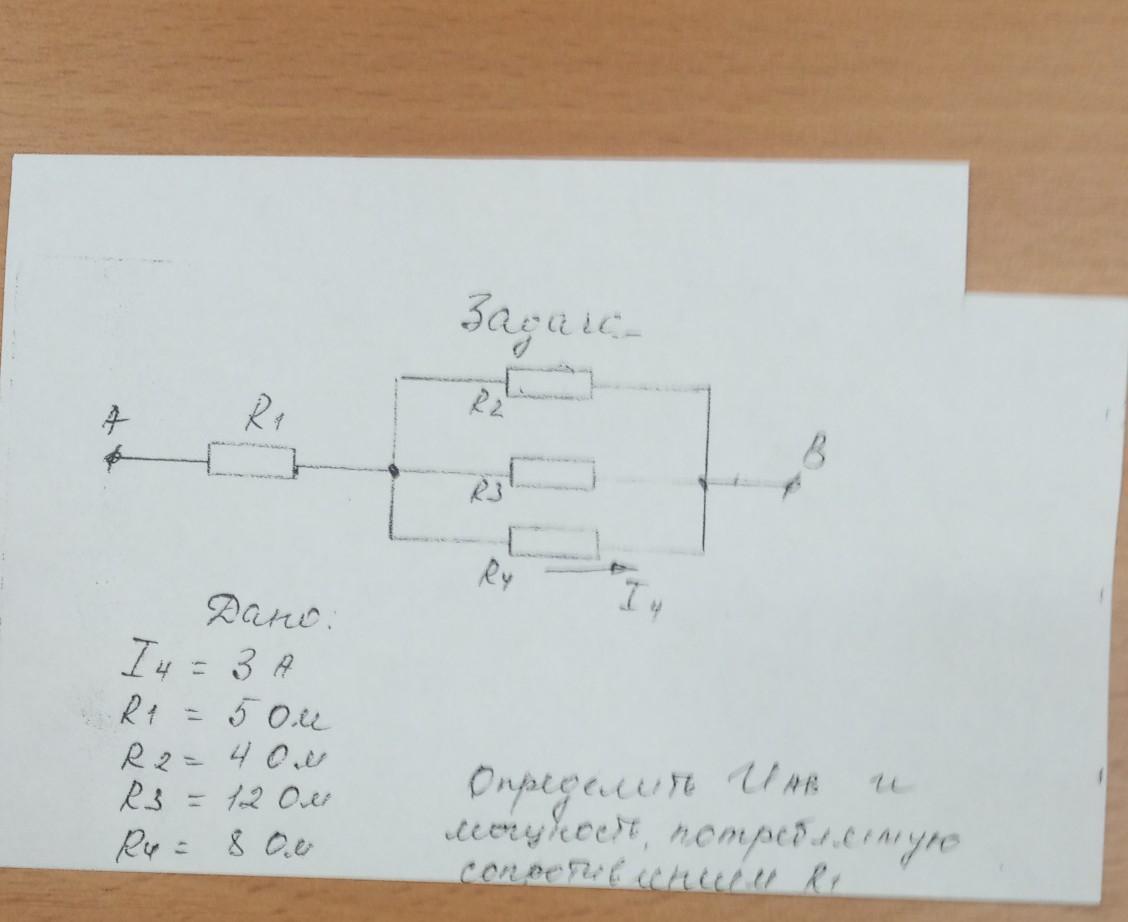 Задача
A
R1
R2
B
R3
R4
I4
Дано:
I4 = 3 А
R1 = 5 Ом
R2 = 4 Ом
R3 = 12 Ом
R4 = 8 Ом
Определить UАВ и
мощность, потребляемую
сопротивлением R1